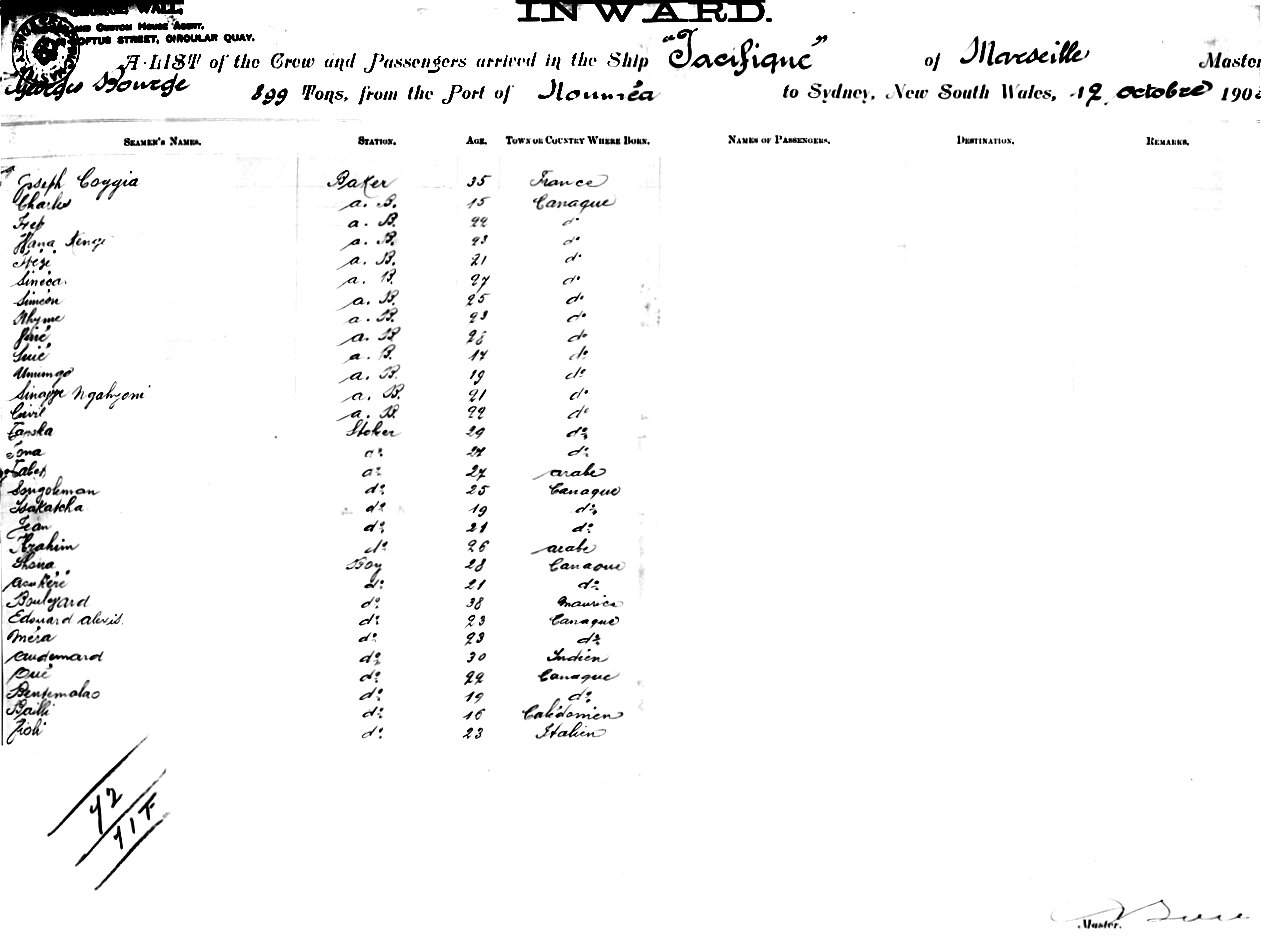 INWARD.
WALL,
AND CUSTOM HOUSE AGENT,
LOFTUS STREET, CIRCULAR QUAY.
A LIST of the Crew and Passengers arrived in the Ship "Pacifique" of Marseille Master
Georges Bourge 899 Tons, from the Port of Nouméa to Sydney, New South Wales, 12 octobre 190
SEAMEN'S NAMES. STATION. AGE. TOWN OR COUNTRY WHERE BORN. NAMES OF PASSENGERS. DESTINATION. REMARKS.
Joseph Coggia Baker 35 France
Charles a. B. 15 Canaque
a. B. 22 do
a. B. 23 do
a. B. 21 do
Sinéca a. B. 27 do
Siméon a. B. 25 do
Rhyme a. B. 23 do
a. B. 28 do
a. B. 17 do
Unumgo a. B. 19 do
Ngahyoni a. B. 21 do
a. B. 22 do
Tanska Stoker 29 do
Tona do 27 do
do 27 arabe
Songoleman do 25 Canaque
Isakatcha do 19 do
Jean do 21 do
Brahim do 26 arabe
Boy 28 Canaque
do 21 do
Boulevard do 38 Maurice
Edouard alexis. do 23 Canaque
Méra do 23 do
Audemard do 30 Indien
do 22 Canaque
Bentemalao do 19 do
Bailli do 16 Calédonien
do 23 Italien
72
71 F
Master.